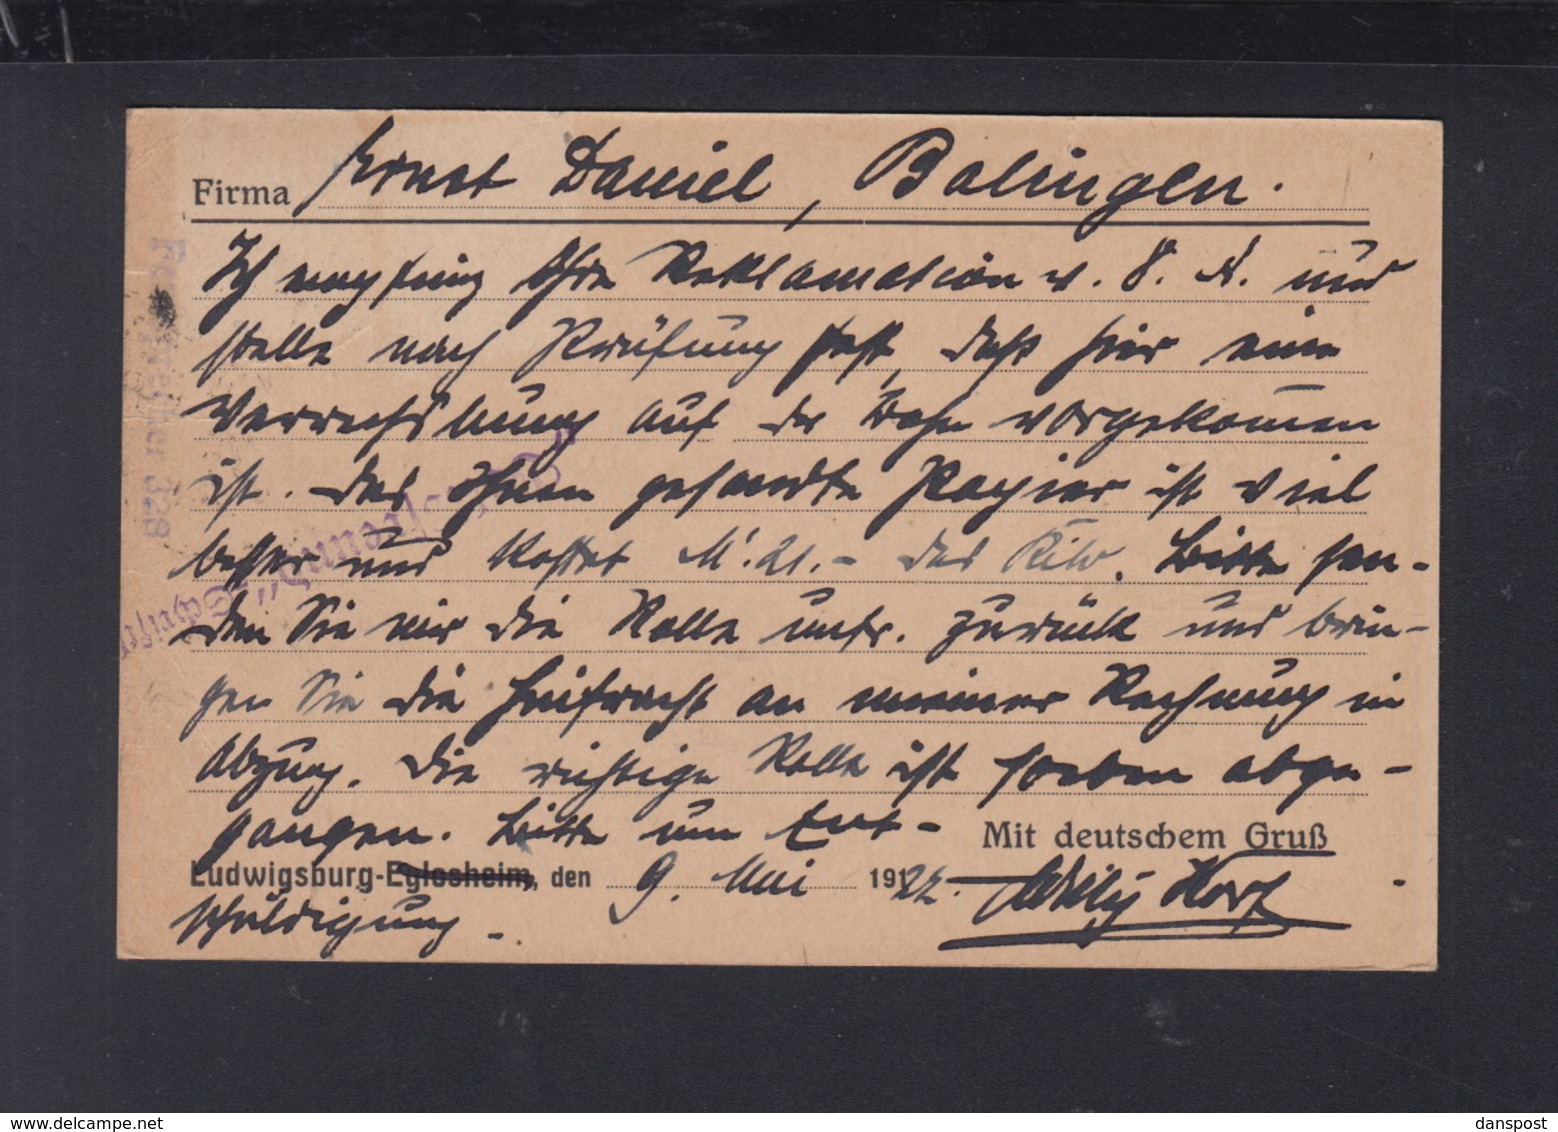 Firma Ernst Daniel, Balingen.
Ich empfing Ihre Reklamation v. 8. d. und
stelle nach Prüfung fest, daß hier eine
Verwechslung auf der Bahn vorgekommen
ist. Das Ihnen gesandte Papier ist viel
besser und kostet M. 21.- das Kilo. Bitte sen-
den Sie mir die Rolle unfr. zurück und brin-
gen Sie die Herfracht an meiner Rechnung in
Abzug. Die richtige Rolle ist soeben abge-
gangen. Bitte um Ent-
Mit deutschem Gruß
Ludwigsburg-Eglosheim, den 9. Mai 1922.
schuldigung.
Fernsprecher 328
danspost